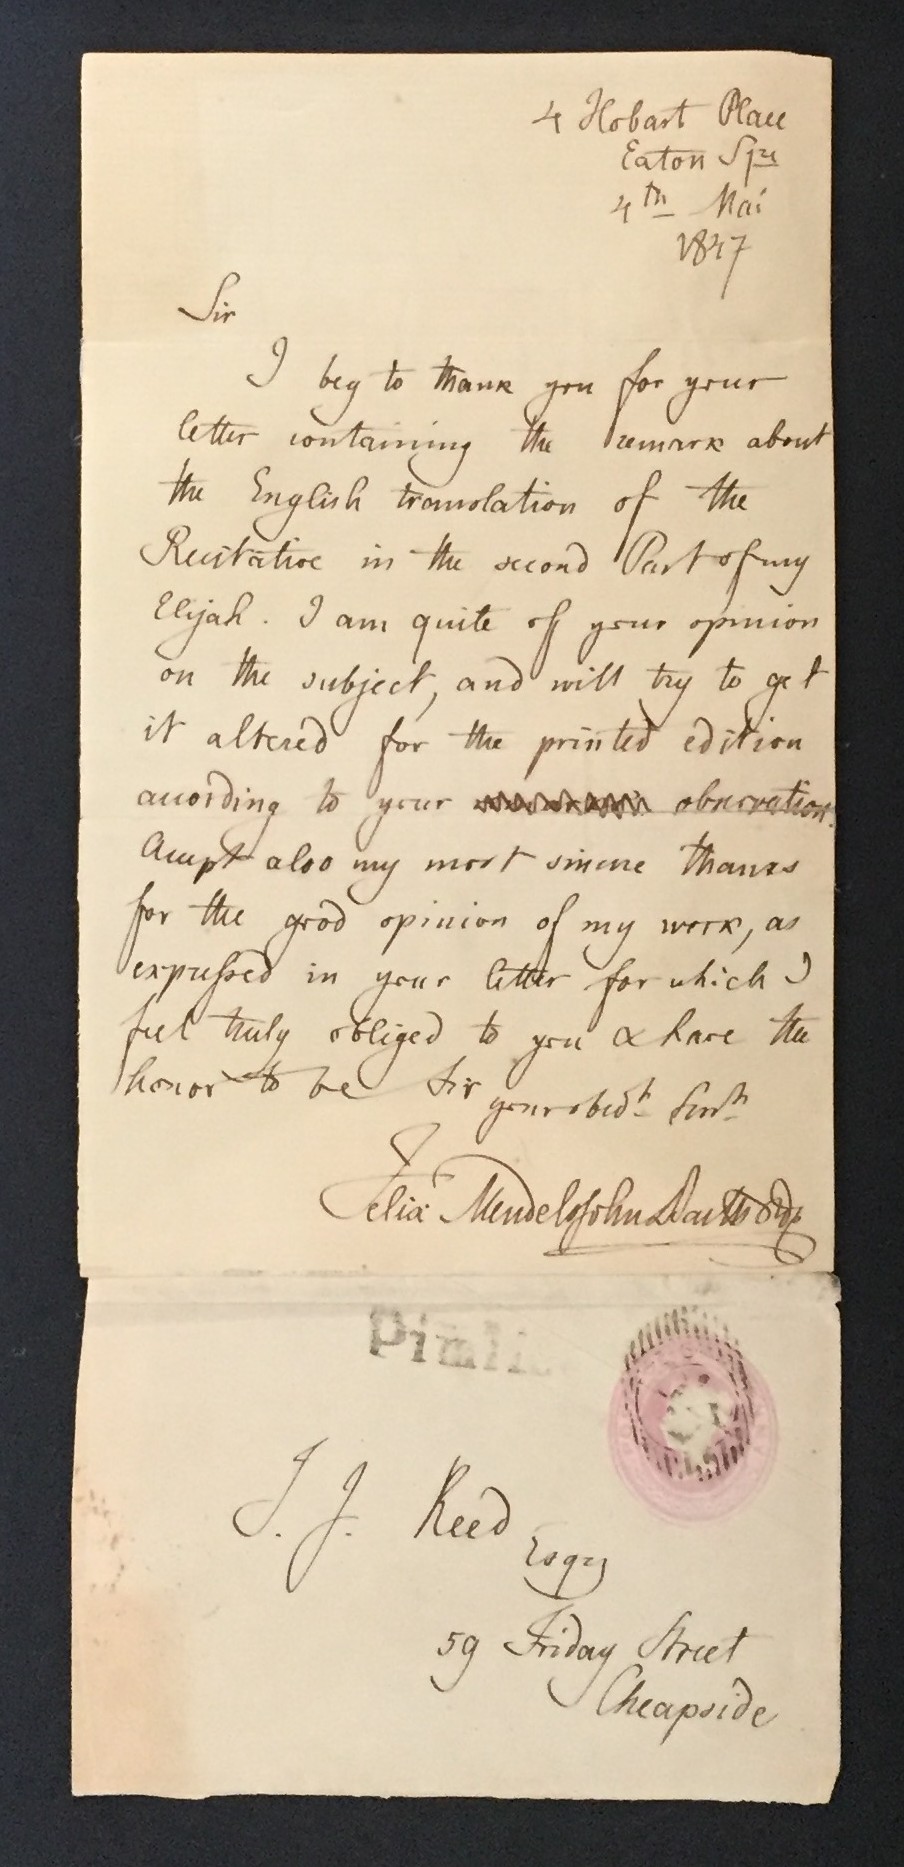 4 Hobart Place
Eaton Sqre
4th Mai
1847
Sir
I beg to thank you for your
letter containing the remark about
the English translation of the
Recitative in the second Part of my
Elijah. I am quite of your opinion
on the subject, and will try to get
it altered for the printed edition
according to your observation.
Accept also my most sincere thanks
for the good opinion of my work, as
expressed in your letter for which I
feel truly obliged to you & have the
honor to be Sir
your obidt Servt
Felix Mendelssohn Bartholdy
Pimli
J. J. Reed
Esqre
59 Friday Street
Cheapside